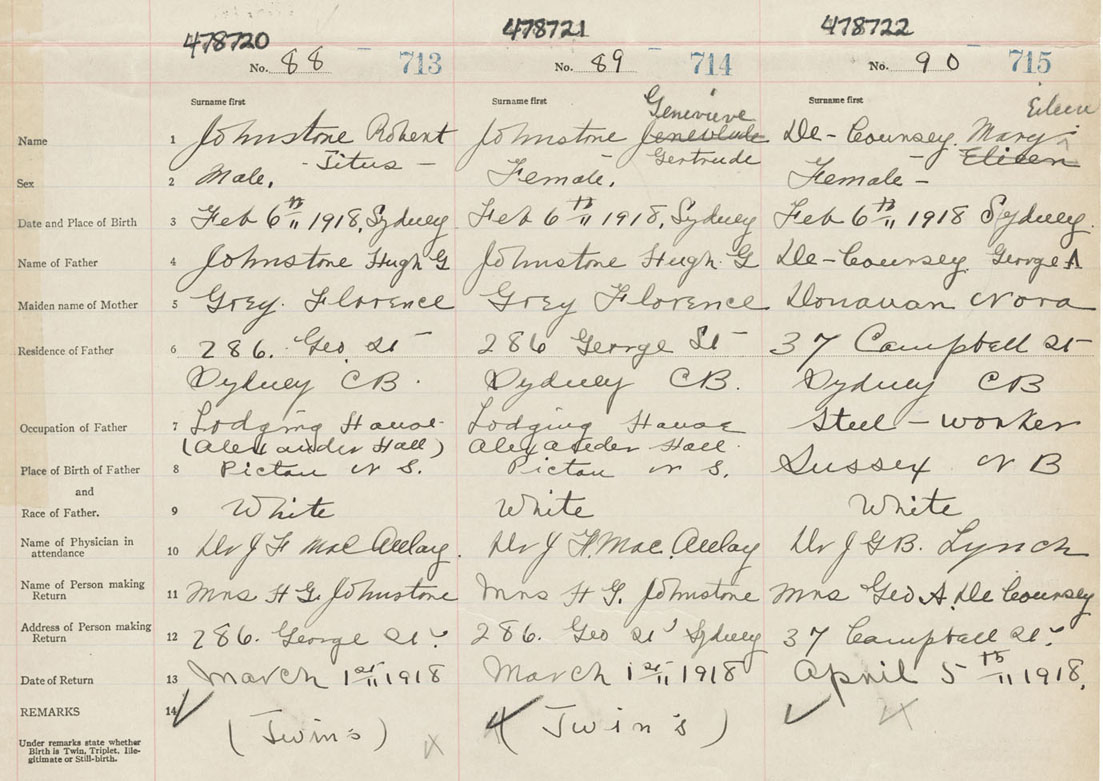 478720 478721 478722
No. 88 713 No. 89 714 No. 90 715
Surname first Surname first Genevieve Surname first Eileen
Name 1 Johnstone Robert Johnstone De-Coursey. Mary
- Titus - Gertrude Elieen
Sex 2 Male. Female. Female -
Date and Place of Birth 3 Feb 6th 1918, Sydney Feb 6th 1918, Sydney Feb 6th 1918 Sydney.
Name of Father 4 Johnstone Hugh G Johnstone Hugh. G De-Coursey George A
Maiden name of Mother 5 Grey. Florence Grey Florence Donavan Nora
Residence of Father 6 286. Geo St 286 George St 37 Campbell St
Sydney CB. Sydney CB. Sydney CB
Occupation of Father 7 Lodging House Lodging House Steel - worker
(Alexander Hall) Alexander Hall.
Place of Birth of Father 8 Pictou N S. Pictou N S. Sussex N B
and
Race of Father. 9 White White White
Name of Physician in
attendance 10 Dr J F MacAulay. Dr J F. Mac.Aulay Dr J G B. Lynch
Name of Person making
Return 11 Mrs H G. Johnstone Mrs H G. Johnstone Mrs Geo A. De Coursey
Address of Person making
Return 12 286. George St. 286. Geo St Sydney 37 Campbell St.
Date of Return 13 March 1st 1918 March 1st 1918 April 5th 1918.
REMARKS 14 (Twin's) (Twin's)
Under remarks state whether
Birth is Twin, Triplet, Ille-
gitimate or Still-birth.